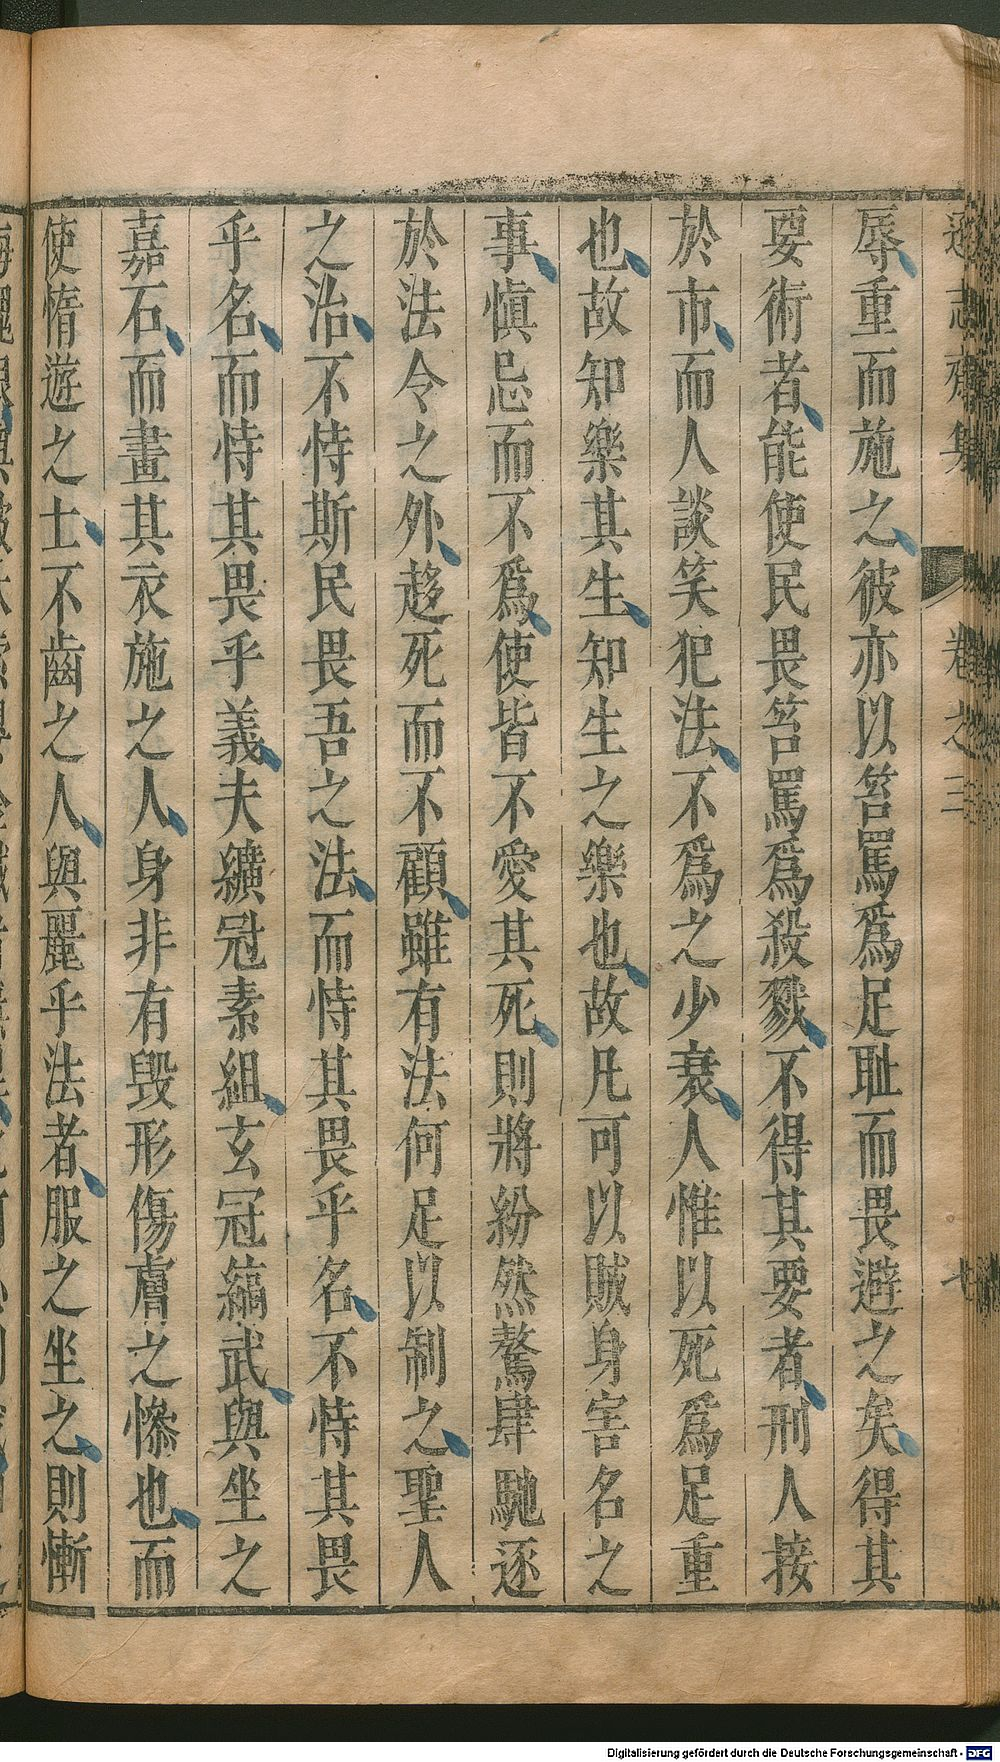 遜志齋集 卷之三 七
辱重而施之彼亦以笞罵爲足耻而畏避之矣得其
要術者能使民畏笞罵爲殺戮不得其要者刑人接
於市而人談笑犯法不爲之少衰人惟以死爲足重
也故知樂其生知生之樂也故凡可以賊身害名之
事愼忌而不爲使皆不愛其死則將紛然驁肆馳逐
於法令之外趍死而不顧雖有法何足以制之聖人
之治不恃斯民畏吾之法而恃其畏乎名不恃其畏
乎名而恃其畏乎義夫纊冠素組玄冠縞武與坐之
嘉石而畫其衣施之人身非有毁形傷膚之慘也而
使惰遊之士不齒之人與麗乎法者服之坐之則慚
Digitalisierung gefördert durch die Deutsche Forschungsgemeinschaft - DFG